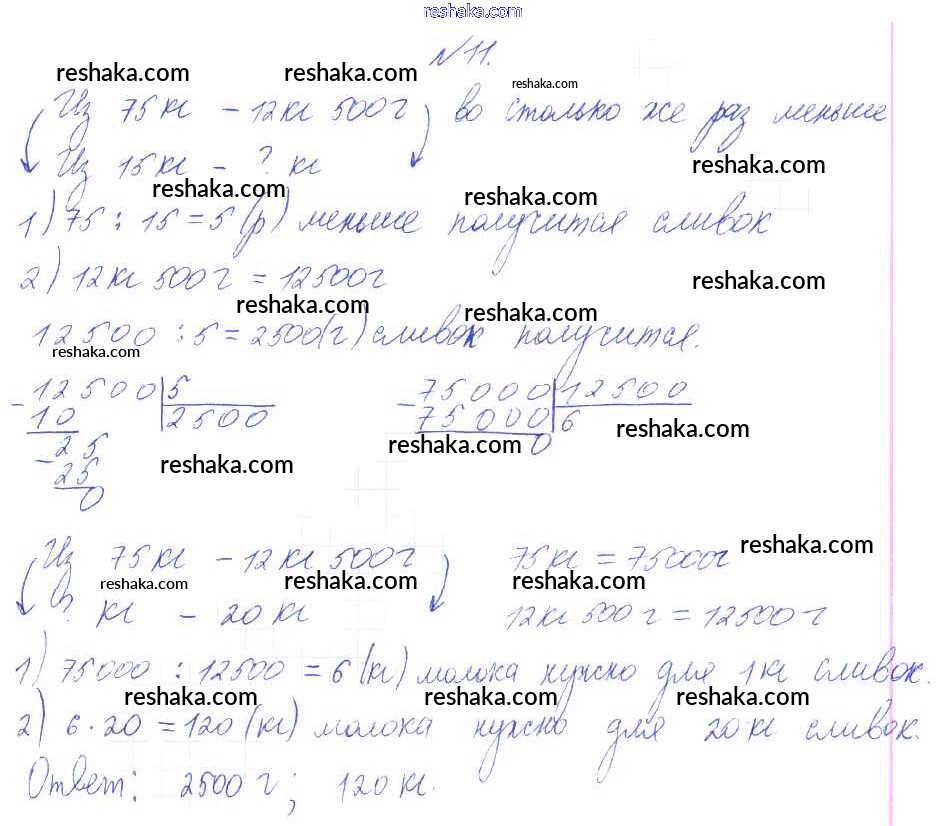 reshaka.com
№ 11.
reshaka.com reshaka.com reshaka.com
Из 75 кг – 12 кг 500 г во столько же раз меньше
Из 15 кг – ? кг reshaka.com
reshaka.com reshaka.com
1) 75 : 15 = 5 (р) меньше получится сливок
2) 12 кг 500 г = 12500 г reshaka.com
reshaka.com reshaka.com
12500 : 5 = 2500 (г) сливок получится.
reshaka.com
- 12500 | 5 - 75000 | 12500
10 2500 75000 6
- 25 0 reshaka.com
reshaka.com
25 reshaka.com
0
Из 75 кг – 12 кг 500 г 75 кг = 75000 г reshaka.com
reshaka.com reshaka.com reshaka.com
? кг – 20 кг 12 кг 500 г = 12500 г
1) 75000 : 12500 = 6 (кг) молока нужно для 1 кг сливок.
reshaka.com reshaka.com reshaka.com
2) 6 · 20 = 120 (кг) молока нужно для 20 кг сливок.
Ответ: 2500 г; 120 кг.